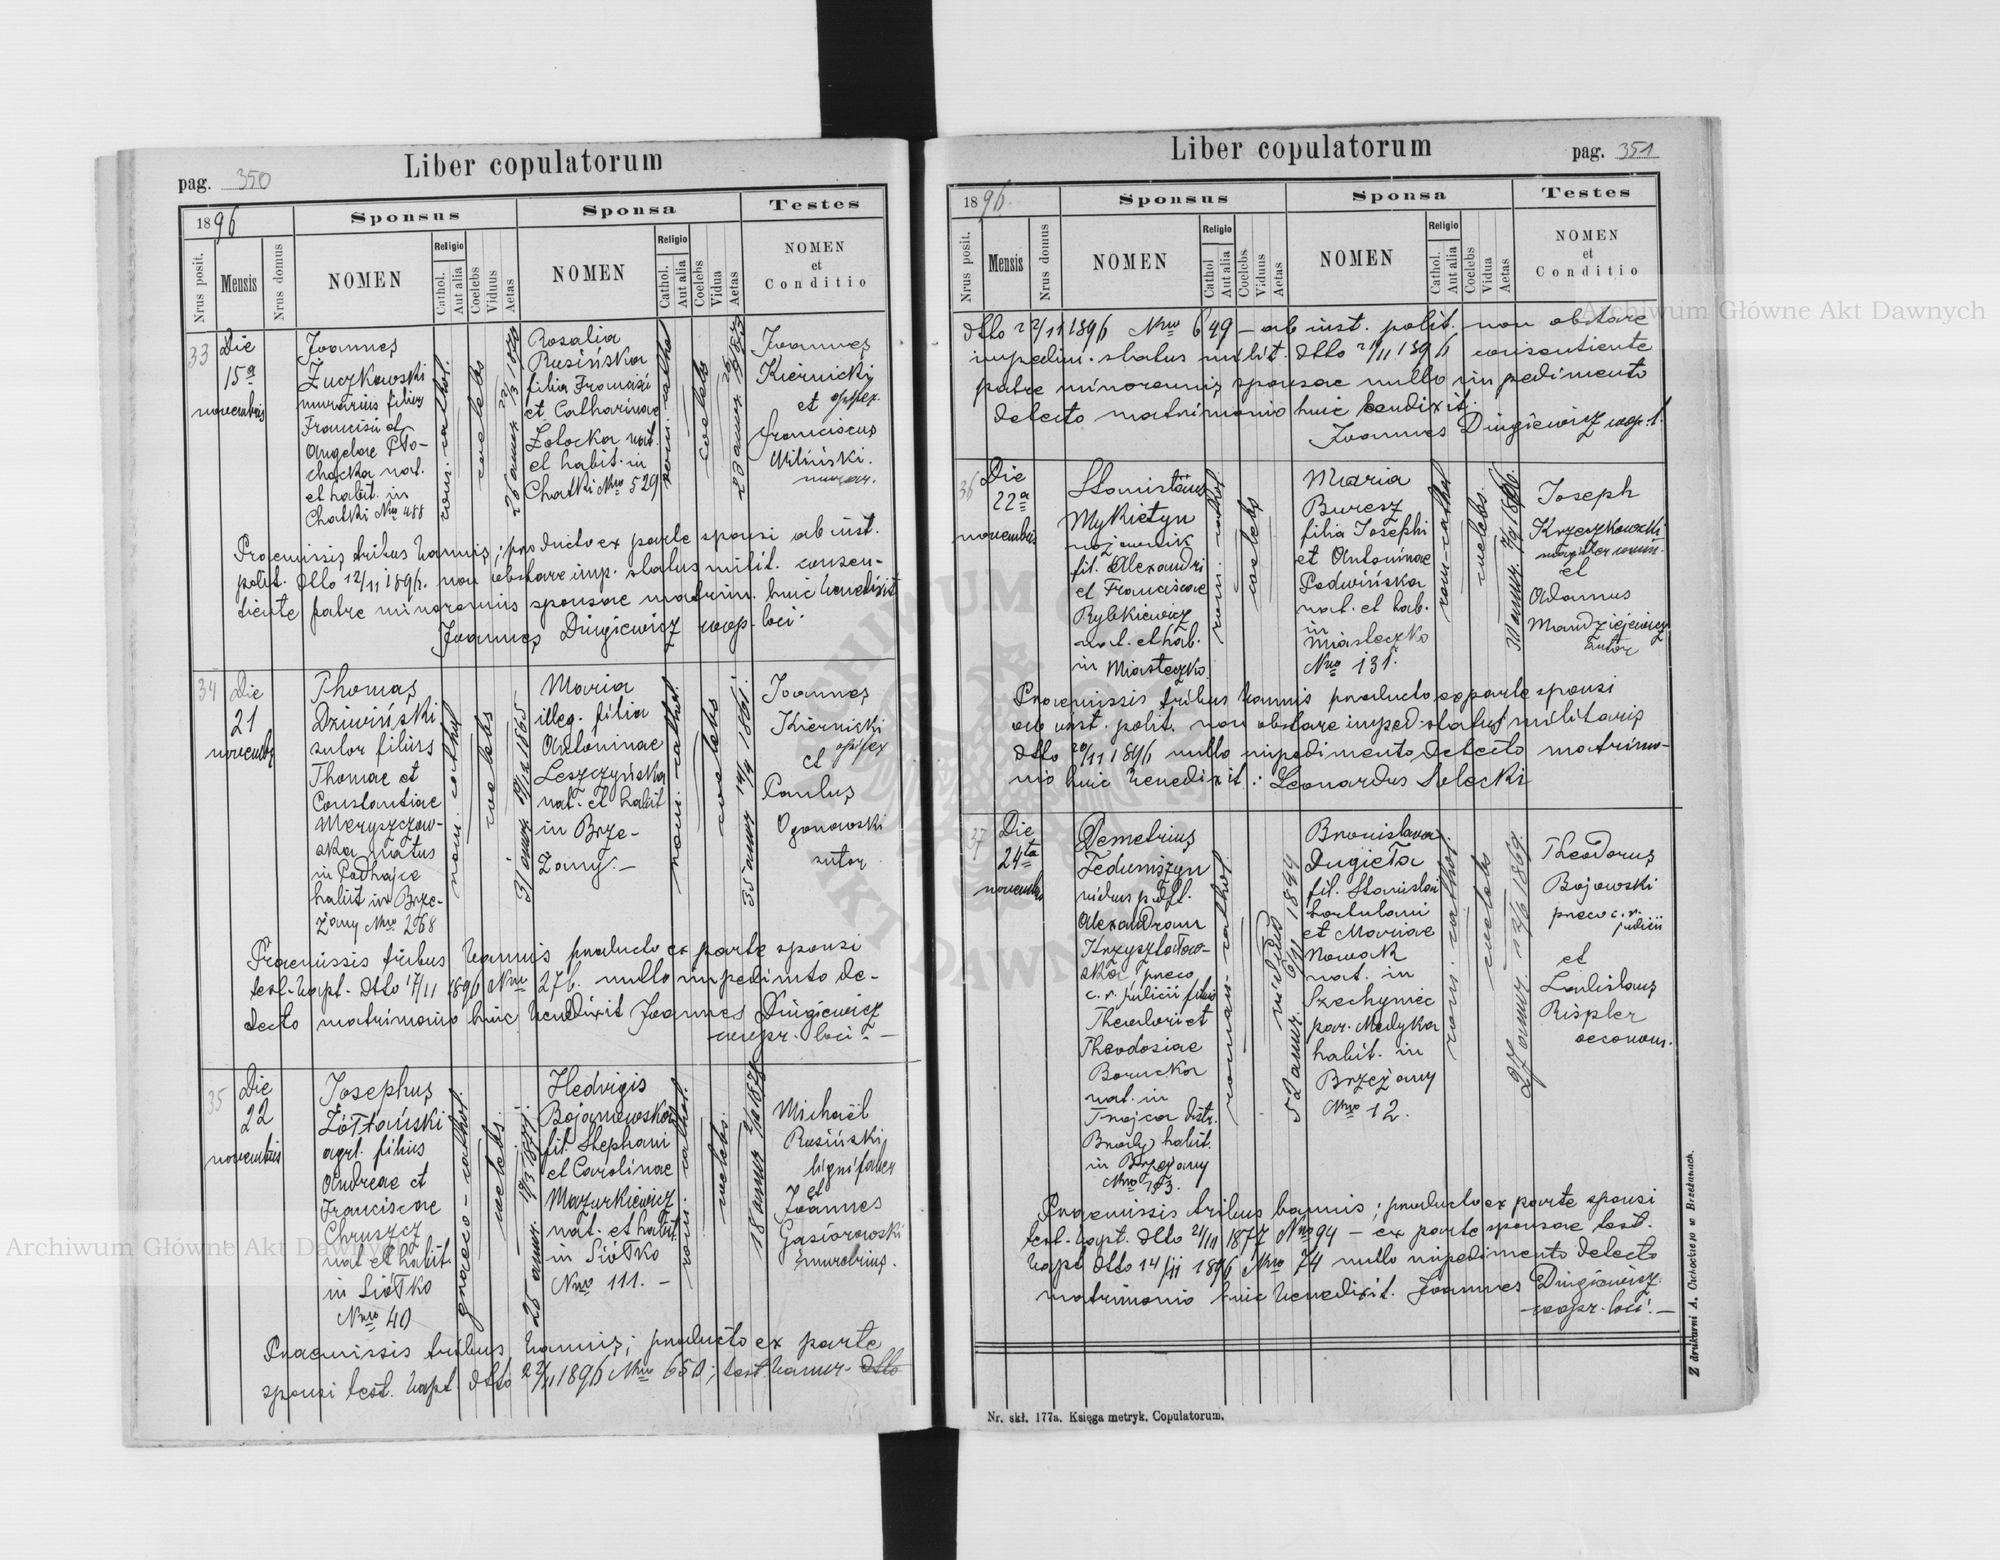 Liber copulatorum
pag. 350
1896
Sponsus
Sponsa
Testes
Nrus posit.
Mensis
Nrus domus
NOMEN
Religio
Cathol.
Aut alia
Coelebs
Viduus
Aetas
NOMEN
Religio
Cathol.
Aut alia
Coelebs
Vidua
Aetas
NOMEN
et
Conditio
33
Die
15a
novembris
Joannes
Żuczkowski
murarius filius
Francisci et
Angelae Pło-
chocka nat.
et habit. in
Chatki Nro 488
rom. cathol.
coelebs
26 annor.
Rosalia
Rusińska
filia Francisci
et Catharinae
Zołocka nat.
et habit. in
Chatki Nro 529
rom. cathol
coelebs
23 annor
Joannes
Kiernicki
et opifex
Franciscus
Miliński.
murar.
Praemissis tribus bannis; producto ex parte sponsi ab inst.
polit. dtto 12/11 1896. non obstare imp. status milit. consen-
tiente patre minorennis sponsae matrim. huic benedixit
Joannes Długiewicz coop. loci.
34
Die
21
novembr
Thomas
Dziwiński
sutor filius
Thomae et
Constantiae
Meryszczow-
ska natus
in Podhajce
habit in Brze-
żany Nro 268
rom. cathol
coelebs
31 annor. 19/12 1865
Maria
illeg. filia
Antoninae
Leszczyńska
nat. et habit
in Brze-
żany. —
rom. cathol.
coelebs
35 annor 14/4 1861.
Joannes
Kiernicki
opifex
et
Paulus
Ogonowski
sutor
Praemissis tribus bannis producto ex parte sponsi
test. bapt. dtto 17/11 1896 Nro 276. nullo impedimto de-
tecto matrimonio huic benedixit Joannes Długiewicz
coopr. loci —
35
Die
22
novembris
Josephus
Żółtański
agrl. filius
Andreae et
Franciscae
Chruszcz
nat et habit.
in Siółko
Nro 40
graeco - cathol.
coelebs.
25 annor.
Hedvigis
Bojanowska
fil. Stephani
et Carolinae
Mazurkiewicz
nat. et habit.
in Siółko
Nro 111. —
rom. cathol.
coelebs.
18 annor
Michaël
Rusiński
lignifaber
et
Joannes
Gasiorowski
murarius.
Praemissis tribus bannis; producto ex parte
sponsi test. bapt. dtto 22/11 1896 Nro 650; test. bannor. dtto
Liber copulatorum
pag. 351
1896.
Sponsus
Sponsa
Testes
Nrus posit.
Mensis
Nrus domus
NOMEN
Religio
Cathol
Aut alia
Coelebs
Viduus
Aetas
NOMEN
Religio
Cathol.
Aut alia
Coelebs
Vidua
Aetas
NOMEN
et
Conditio
dtto 22/11 1896 Nro 649 — ab inst. polit. non obstare
impedim. status milit. dtto 21/11 1896 consentiente
patre minorennis sponsae nullo impedimento
detecto matrimonio huic bendixit.
Joannes Długiewicz coop. l.
36
Die
22a
novembris
Stanislaus
Mykietyn
fil. Alexandri
et Franciscae
Rybkiewicz
nat. et hab.
in Miasteczko
rom. cathol.
coelebs
Maria
Buresz
filia Josephi
et Antoninae
Podwińska
nat. et hab.
in
Miasteczko
Nro 131.
rom-cathol
coelebs.
Joseph
Krzeczkowski
et
Adamus
Mandziejewicz
sutor
Praemissis tribus bannis producto ex parte sponsi
ab inst. polit. non obstare imped. status militaris
dtto 20/11 1896 nullo impedimento detecto matrimo-
nio huic benedixit: Leonardus Solecki
37
Die
24ta
novembr
Demetrius
Feduniszyn
viduus p. dft.
Alexandram
Krzyształow-
ska praeco
c. r. judicii filius
Theodori et
Theodosiae
Borucka
nat. in
Trojca distr.
Brody habit.
in Brzeżany
Nro 153.
roman-cathol
viduus
52 annor. 6/11 1844
Bronislava
Dugiełła
fil. Stanislai
hortulani
et Mariae
Nowak
nat. in
Szechynie
par. Medyka
habit. in
Brzeżany
Nro 12.
rom. cathol.
coelebs
27 annor. 13/6 1869.
Theodorus
Bojowski
praeco c. r.
judicii
et
Ladislaus
Rispler
oeconom.
Praemissis tribus bannis; producto ex parte sponsi
test. bapt. dtto 21/11 1877 Nro 94 — ex parte sponsae test.
bapt dtto 14/11 1896 Nro 74 nullo impedimento detecto
matrimonio huic benedixit. Joannes Długiewicz.
coopr. loci. —
Nr. skł. 177a. Księga metryk. Copulatorum.
Z drukarni A. Cichockiego w Brzeżanach.
Archiwum Główne Akt Dawnych
Archiwum Główne Akt Dawnych